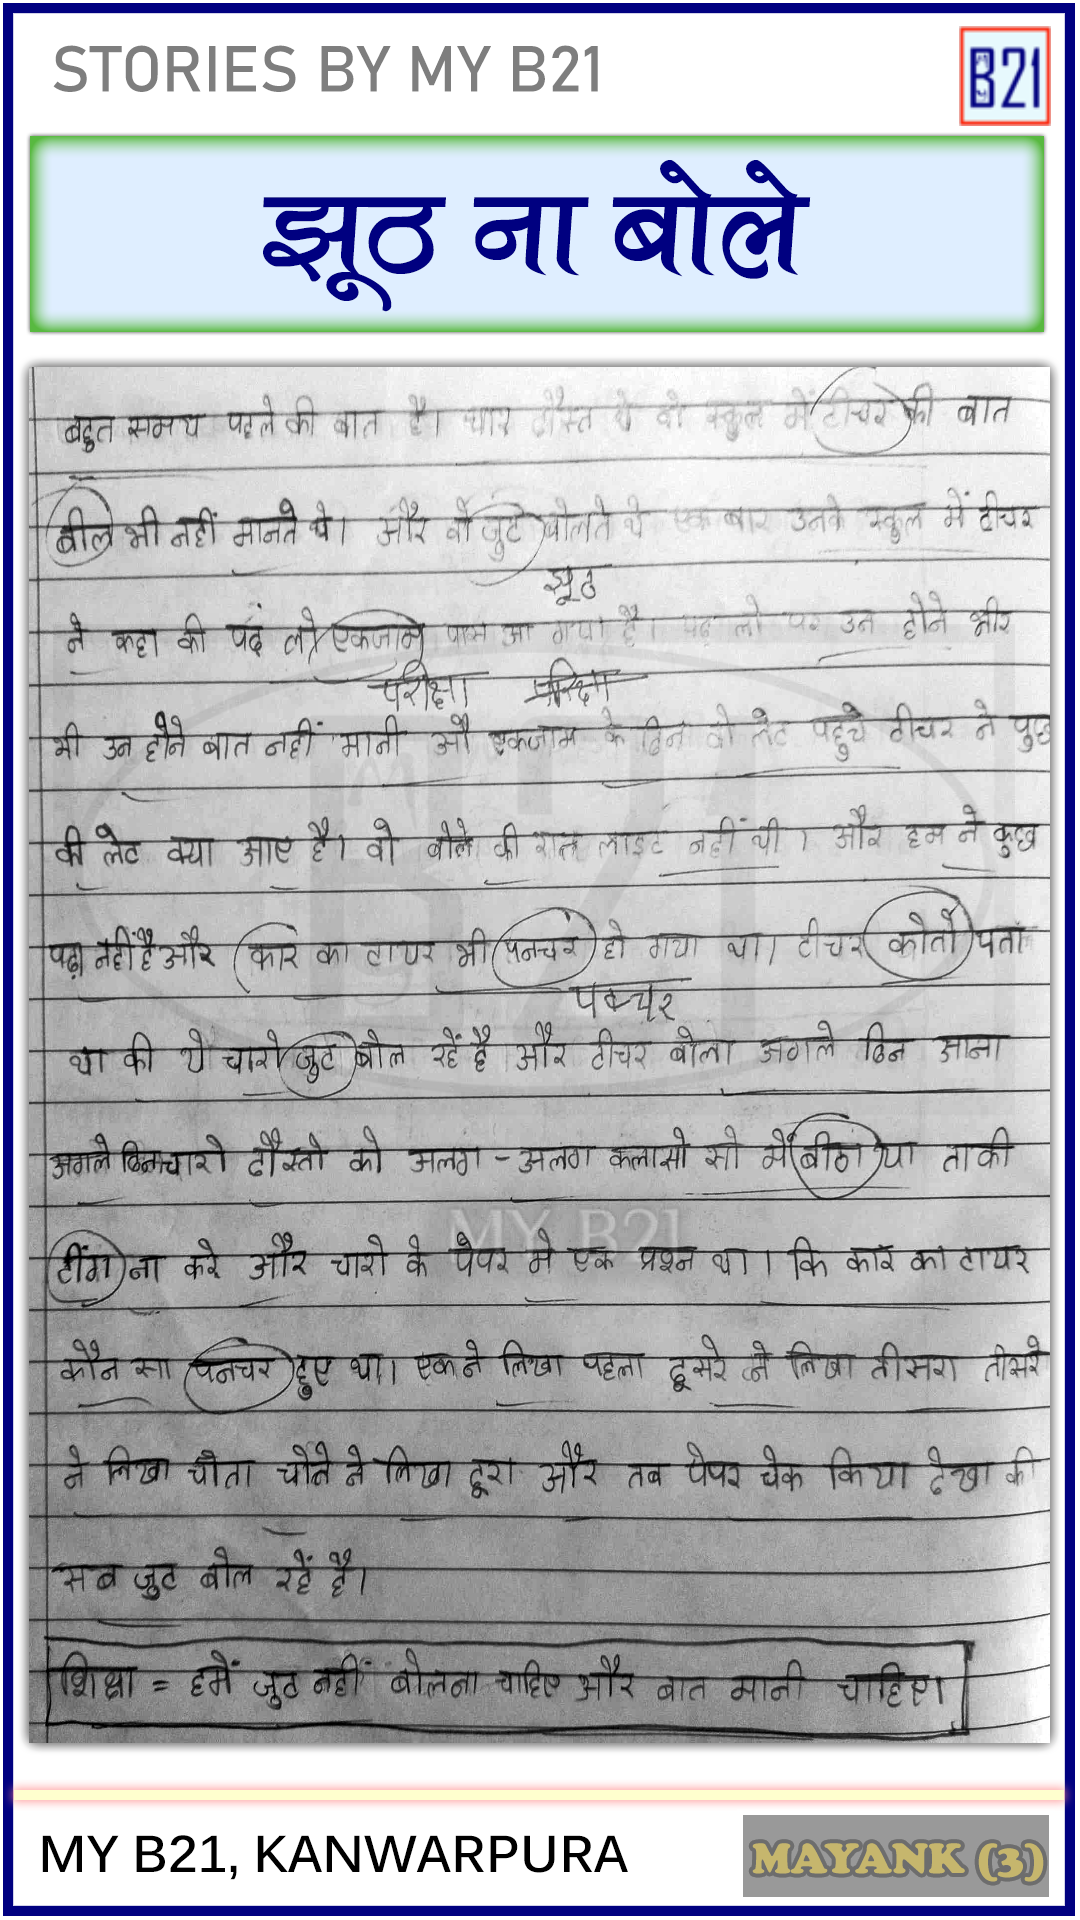 STORIES BY MY B21
B21
झूठ ना बोले
बहुत समय पहले की बात है। चार दौस्त थे वो स्कुल में टीचर की बात
बील भी नहीं मानते थे। और वो जुटे बोलते थे एक बार उनके स्कुल में टीचर
झूठ
ने कहा की पढं लो एकजाम पास आ गया है। पढ़ लो पर उन होने और
परीक्षा परिक्षा
भी उन होने बात नहीं मानी औ एकजाम के दिन वो लेट पहुचे टीचर ने पुछ
की लेट क्या आए है। वो बोले की रात लाइट नहीं थी। और हम ने कुछ
पढ़ा नहीं है और कार का टायर भी पनचर हो गया था। टीचर कोतो पता
पन्चर
था की ये चारो जुट बोल रहें है और टीचर बोला अगले दिन आना
अगले दिन चारो दौस्तो को अलग - अलग कलासो सो में बीठा या ताकी
टींग ना करे और चारो के पेपर मे एक प्रश्न था। कि कार का टायर
कौन सा पनचर हुए था। एक ने लिखा पहला दूसरे ने लिखा तीसरा तीसरे
ने लिखा चौता चौते ने लिखा दूरा और तब पेपर चेक किया देखा की
सब जुट बोल रहें है।
शिक्षा = हमें जुट नहीं बोलना चाहिए और बात मानी चाहिए।
MY B21
MY B21, KANWARPURA
MAYANK (3)